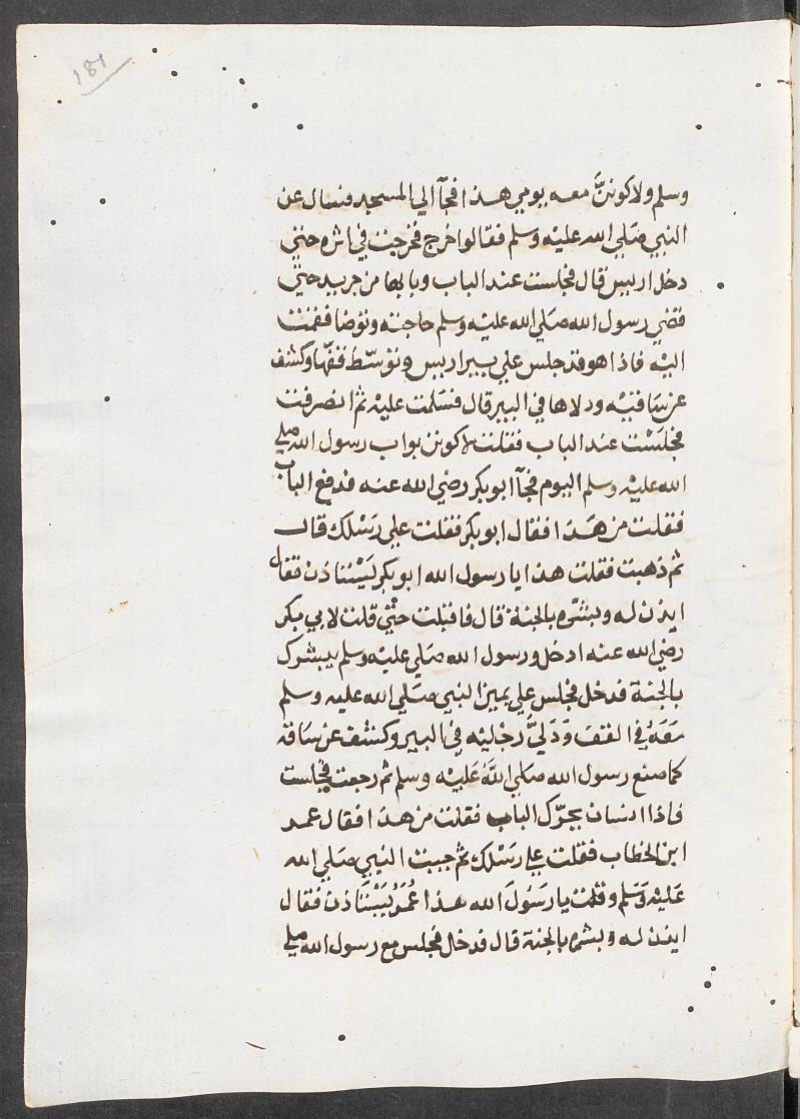 181
وسلم ولاكونن معه يومي هذا فجآ الي المسجد فسال عن
النبي صلي الله عليه وسلم فقالوا خرج فخرجت في اثره حتي
دخل اريس قال فجلست عند الباب وبابها من جريد حتي
قضي رسول الله صلي الله عليه وسلم حاجته وتوضا فقمت
اليه فاذا هو قد جلس علي بير اريس وتوسّط قفّها وكشف
عن ساقيه ودلاها في البير قال فسلمت عليه ثم انصرفت
فجلست عند الباب فقلت لاكونن بواب رسول الله صلي
الله عليه وسلم اليوم فجآ ابو بكر رضي الله عنه فدفع الباب
فقلت من هذا فقال ابو بكر فقلت علي رسلك قال
ثم ذهبت فقلت هذا يا رسول الله ابو بكر ليستاذن فقال
ايذن له وبشّره بالجنة قال فاقبلت حتّي قلت لابي بكر
رضي الله عنه ادخل ورسول الله صلي عليه وسلم يبشرك
بالجنة فدخل فجلس علي يمين النبي صلي الله عليه وسلم
معه في القف ودليّ رجليه في البير وكشف عن ساقه
كما صنع رسول الله صلي اللهُ عليه وسلم ثم رجعت فجلست
فاذا انسان يحرّك الباب فقلت من هذا فقال عمر
ابن الخطاب فقلت علي رسلك ثم جيت النبي صلي الله
عليه وسلم وقلت يا رسول الله هذا عُمَرُ يستاذن فقال
ايذن له وبشره بالجنة قال فدخل فجلس مع رسول الله صلي